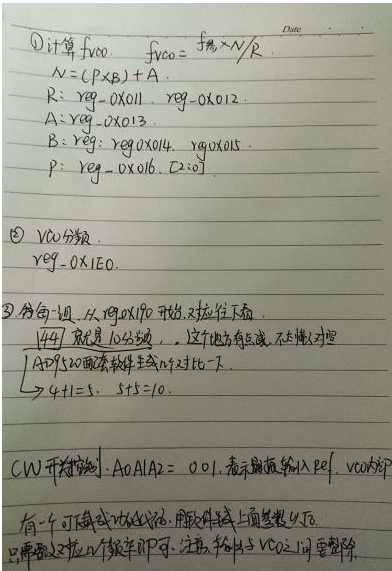 Date
①计算fvco. fvco = f参×N/R.
N=(P×B)+A.
R: reg-0X011. reg-0X012.
A: reg-0X013.
B: reg: reg0x014. reg0x015.
P: reg-0x016. [2:0]
② VCO分频.
reg-0x1E0.
③ 每一组、从reg0x190开始.对应往下看
44 就是10分频,。这个地方有点难.不太懂,对照
AD9520配套软件生成几个对比一下.
→ 4+1=5. 5+5=10.
CW开关控制. A0A1A2= 001.表示晶振输入ref. VCO内部
有一个可 用软件 上面参数以后
只需要 对应几个频率即可.注意,输出与VCO之间要整除.